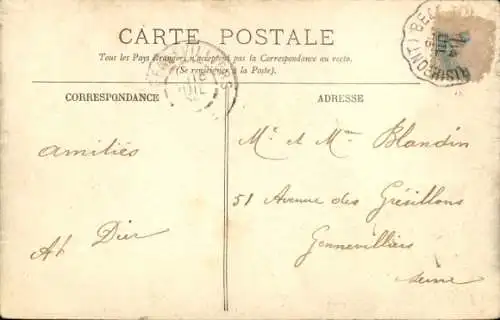 CARTE POSTALE
Tous les Pays étrangers n'acceptent pas la Correspondance au recto.
(Se renseigner à la Poste).
CORRESPONDANCE
ADRESSE
Amitiés
Mr. et Mme Blandin
51 Avenue des Grésillons
Gennevilliers
Seine